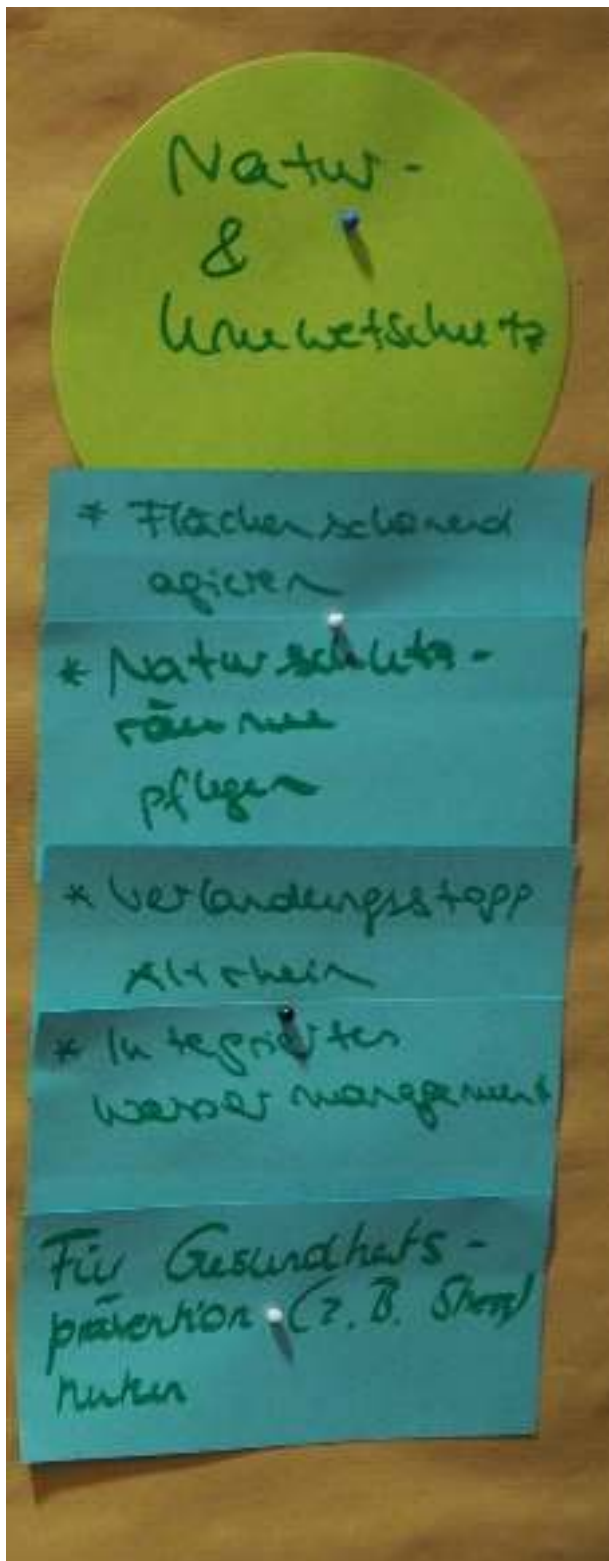 Natur-
&
Umwetschutz
* Flächenschonend
agieren
* Naturschutz-
räume
pflegen
* Verlandungsstopp
Altrhein
* Integriertes
Wassermanagement
Für Gesundheits-
prävention (z. B. Stress)
nutzen